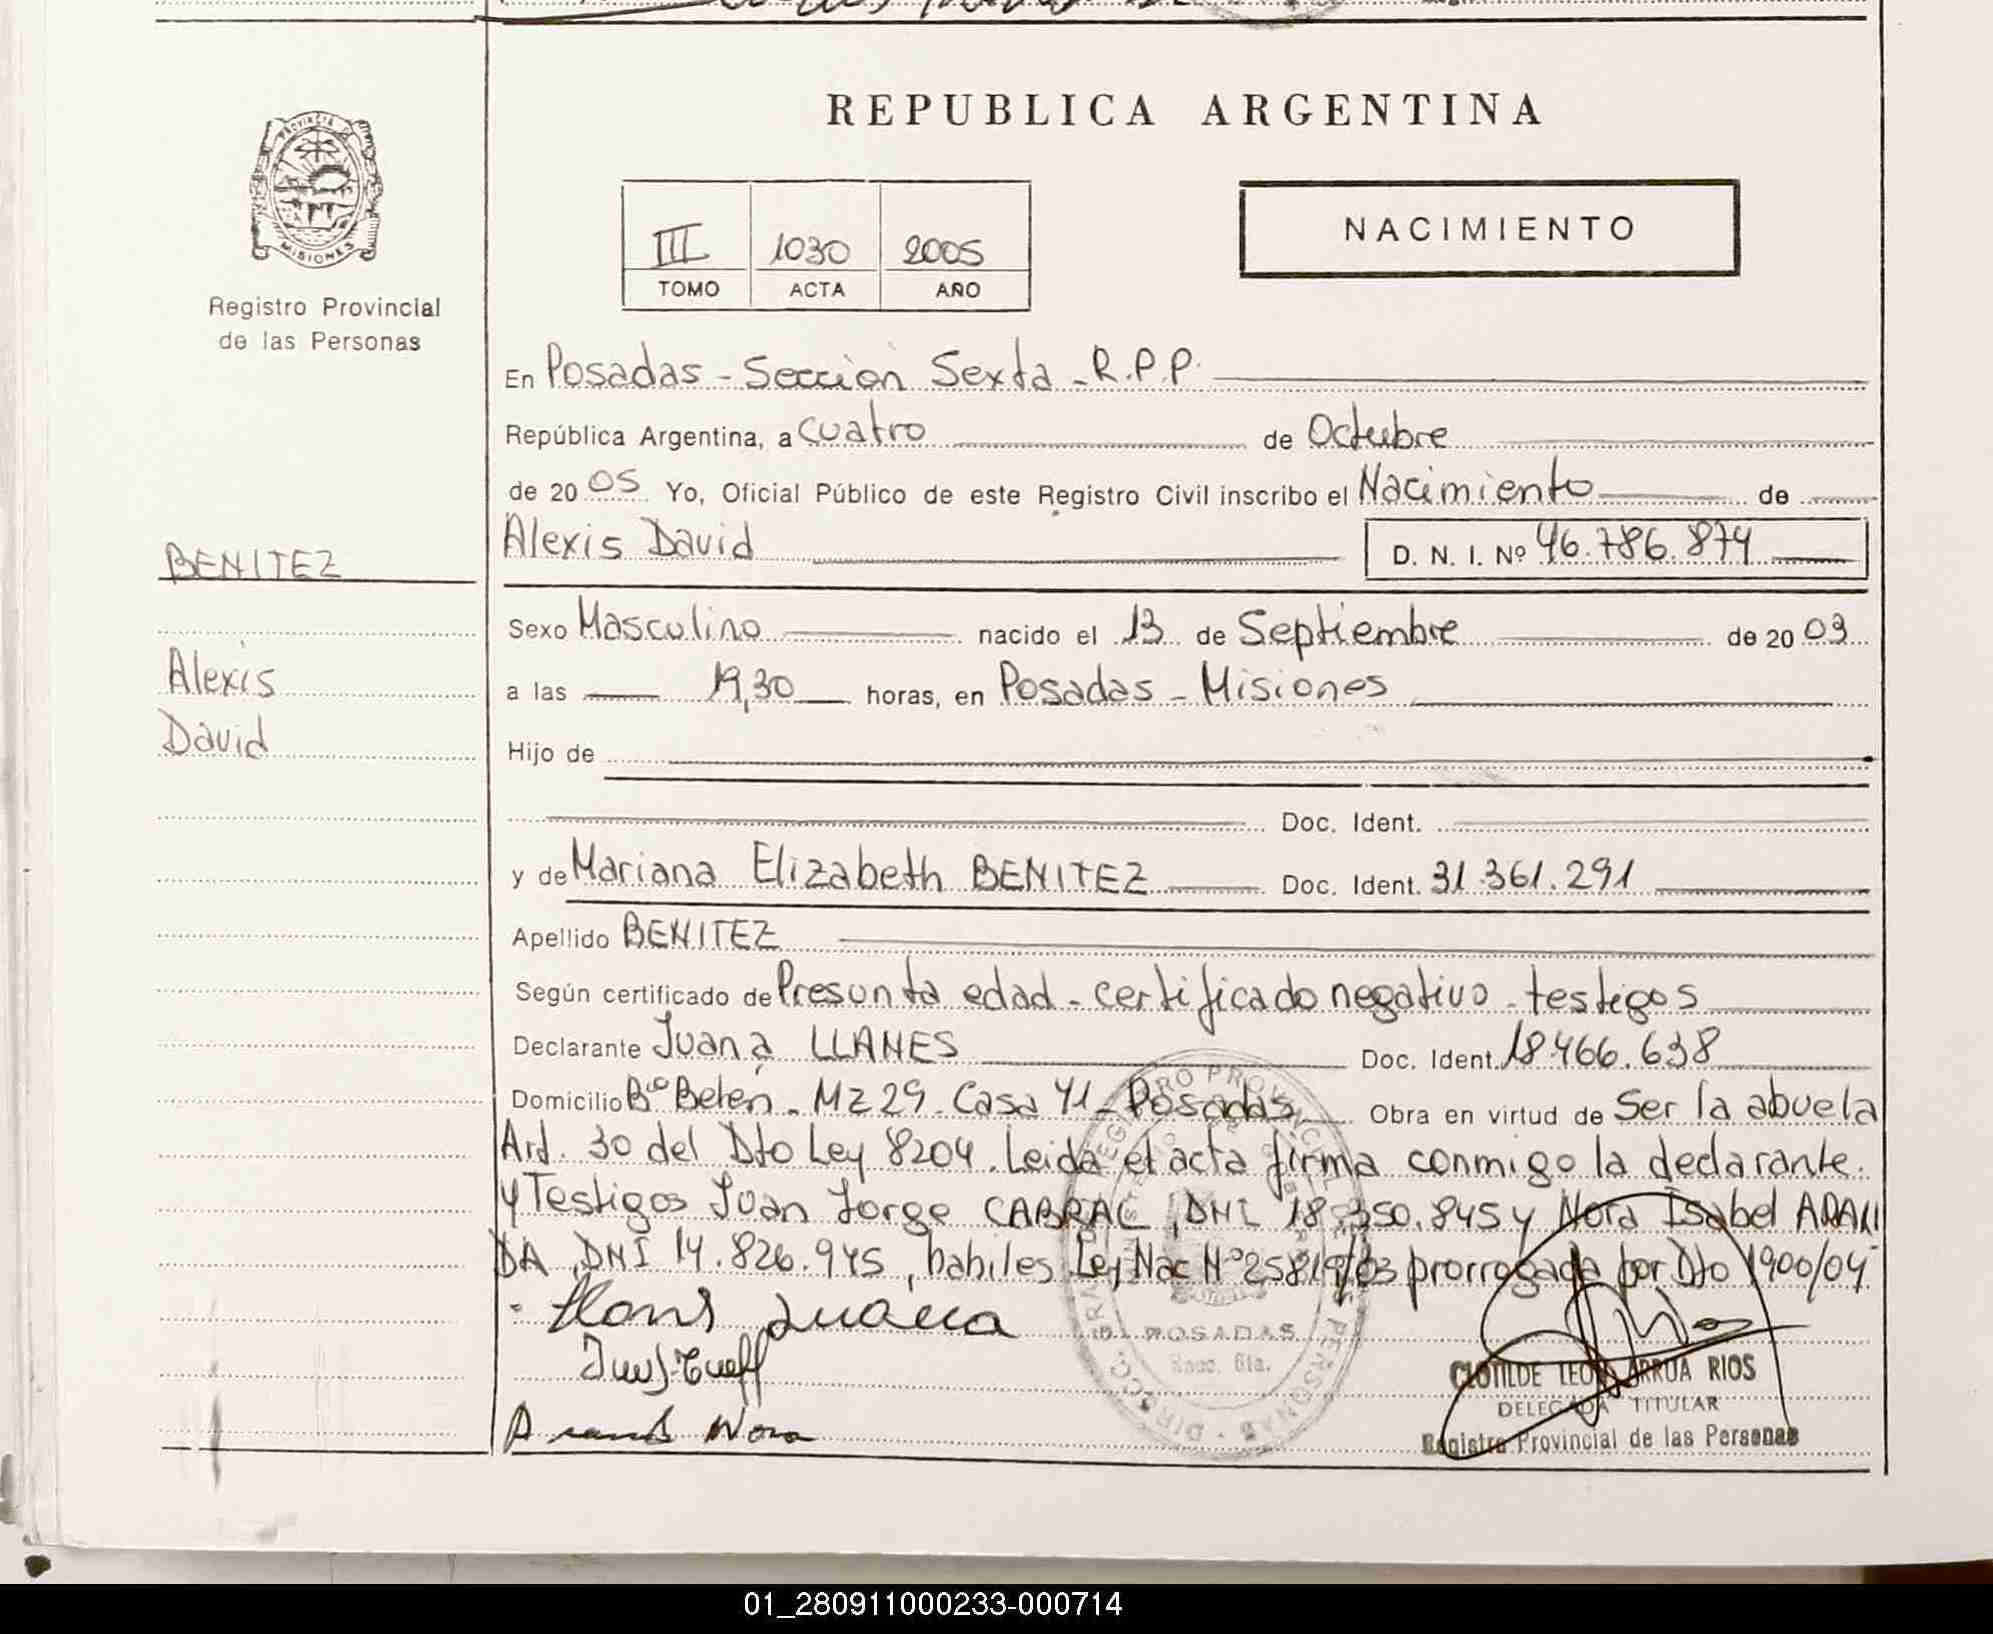 REPUBLICA ARGENTINA
PROVINCIA D
MISIONES
Registro Provincial
de las Personas
III 1030 2005
TOMO ACTA AÑO
NACIMIENTO
En Posadas - Sección Sexta - R.P.P.
República Argentina, a cuatro de Octubre
de 2005 Yo, Oficial Público de este Registro Civil inscribo el Nacimiento de
Alexis David D. N. I. Nº 46.786.874
BENITEZ
Alexis
David
Sexo Masculino nacido el 13 de Septiembre de 2003
a las 19,30 horas, en Posadas - Misiones
Hijo de
Doc. Ident.
y de Mariana Elizabeth BENITEZ Doc. Ident. 31.361.291
Apellido BENITEZ
Según certificado de Presunta edad - certificado negativo - testigos
Declarante Juana LLANES Doc. Ident. 18.466.638
Domicilio Bº Belén - MZ 29 - Casa 41 - Posadas Obra en virtud de Ser la abuela
Art. 30 del Dto Ley 8204. Leida el acta firma conmigo la declarante
y Testigos Juan Jorge CABRAL, DNI 18.350.845 y Nora Isabel ARAN
DA, DNI 14.826.945, habiles Ley Nac Nº 25819/03 prorrogada por Dto 1900/04
Juana
POSADAS
Secc. 6ta.
CLOTILDE LEO ARRUA RIOS
DELEGADA TITULAR
Registro Provincial de las Personas
Nora
01_280911000233-000714